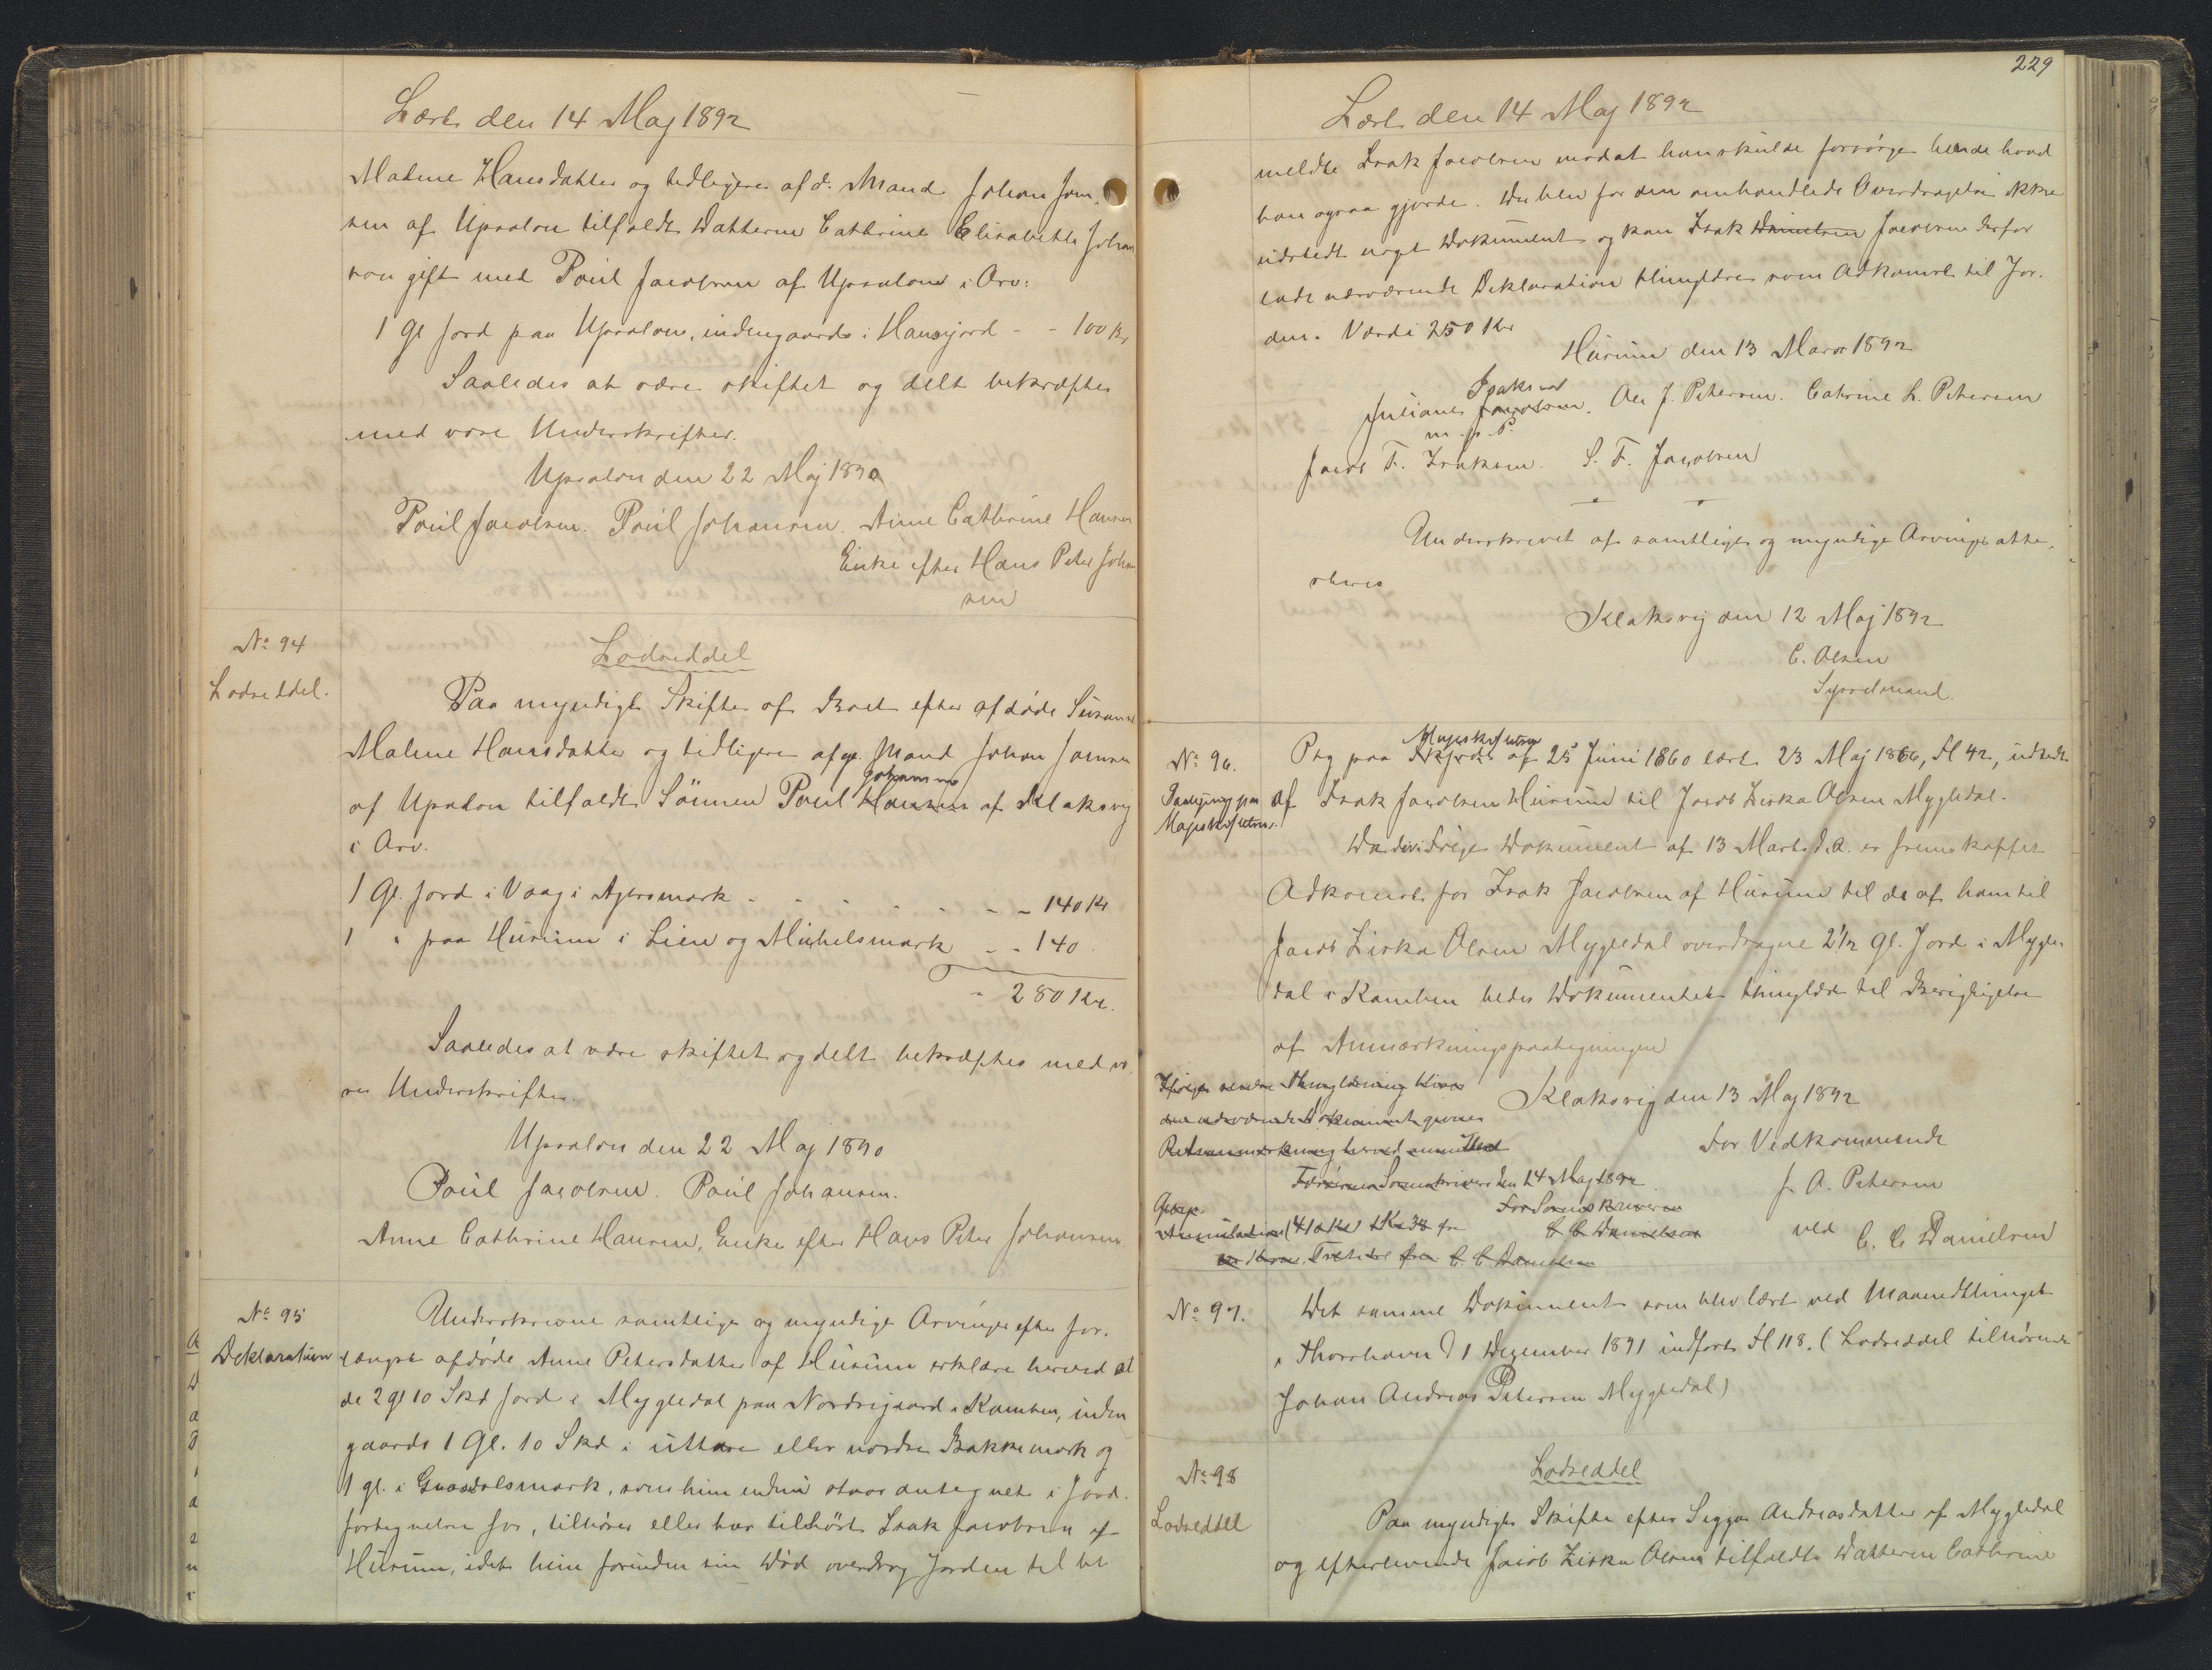 Læst den 14 Maj 1892
Malene Hansdatter og tidligere afd. Mand Johan Jom-
sen af Upsalon tilfaldt Datteren Cathrine Elisabeth Johan
sen gift med Poul Jacobsen af Upsalon i Arv:
1 Gl Jord paa Upsalon, indengaards i Hansjord - - 100 Kr
Saaledes at være skiftet og delt bekræftes
med vore Underskrifter.
Upsalon den 22 Maj 1890
Poul Jacobsen. Poul Johansen. Anne Cathrine Hansen
Enke efter Hans Peter Johan
sen
No 94
Lodseddel.
Lodseddel
Paa myndigt Skifte af Boet efter afdøde Susanne
Malene Hansdatter og tidligere afg. Mand Johan Jomsen
af Upsalon tilfaldt Sønnen Poul Hansen Johannes af Klaksvig
i Arv.
1 Gl. Jord i Vaag i Agersmark - - - - - - - 140 Kr
1 " paa Husum i Lien og Mikkelsmark - - 140
- 280 Kr.
Saaledes at være skiftet og delt bekræftes med vo
re Underskrifter.
Upsalon den 22 Maj 1890
Poul Jacobsen. Poul Johansen.
Anne Cathrine Hansen, Enke efter Hans Peter Johansen.
No 95
Deklaration
Underskrevne samtlige og myndige Arvinger efter for.
længst afdøde Anne Petersdatter af Husum erklære herved at
de 2 gl 10 Skd Jord i Mygledal paa Nordrigaard i Kamben, inden
gaards 1 Gl. 10 Skd i uttare eller nordre Bakkemark og
1 gl. i Gaasdalsmark, som hun endnu staar antegnet i Jord.
fortegnelsen for, tilhører eller har tilhørt Isak Jacobsen af
Husum, idet hun forinden sin Død overdrog Jorden til be
229
Læst den 14 Maj 1892
meldte Isak Jacobsen mod at han skulde forsørge hende hvad
han ogsaa gjorde. Der blev for den omhandlede Overdragelse ikke
udstedt noget Dokument og kan Isak Danielsen Jacobsen derfor
lade nærværende Deklaration thinglæse som Adkomst til Jor.
den. Værdi 250 Kr
Husum den 13 Marts 1892
Isaksen
Juliane Jacobsen. Ole J. Petersen. Cathrine L. Petersen
m. f. P.
Jacob F. Isaksen. S. F. Jacobsen
Underskrevet af samtlige og myndige Arvinger atte.
steres
Klaksvig den 12 Maj 1892
C. Olsen
Sysselmand.
No 96.
Paategning paa
Mageskiftebrev.
Mageskiftebrev
Ptg paa Skjøde af 25 Juni 1860 læst 23 Maj 1866, Fl 42, udstedt
af Isak Jacobsen Husum til Jacob Zirka Olsen Mygledal.
Da der ifølge Dokument af 13 Marts d. A. er fremskaffet
Adkomst for Isak Jacobsen af Husum til de af ham til
Jacob Zirka Olsen Mygledal overdragne 2 1/2 Gl. Jord i Mygle-
dal i Kamben bedes Dokumentet thinglæst til Berigtigelse
af Anmærkningspaategningen
Ifølge senere Thinglæsning bliver
den nærværende Dokument givne
Retsanmærkning herved annulleret
Færøernes Sorenskriveri den 14 Maj 1892
For Sorenskriveren
C. C. Danielsen
Klaksvig den 13 Maj 1892
For Vedkommende
J. A. Petersen
ved C. C. Danielsen
No 97.
Det samme Dokument som blev læst ved Maanedthinget
i Thorshavn d 1 Dezember 1891 indført Fl 118. (Lodseddel tilhørende
Johan Andreas Petersen Mygledal)
No 98
Lodseddel
Lodseddel
Paa myndigt Skifte efter Sigga Andreasdatter af Mygledal
og efterlevende Jacob Zirka Olsen tilfaldt Datteren Cathrine